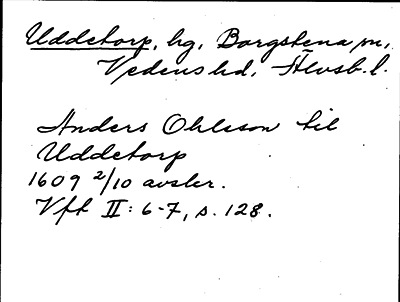 Uddetorp, hg, Borgstena sn,
Vedens hd, Älvsb. l.
Anders Ohlsson till
Uddetorp
1609 2/10 avsler.
Vft II: 6-7, s. 128.